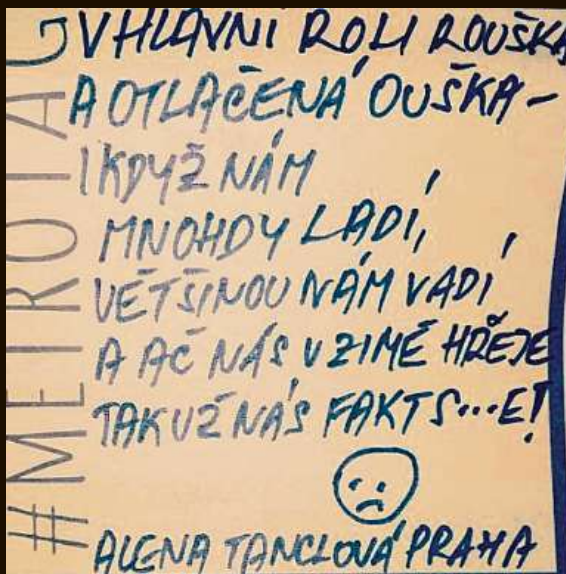 #METROTAG
V HLAVNÍ ROLI ROUŠKA
A OTLAČENÁ OUŠKA -
I KDYŽ NÁM
MNOHDY LADÍ,
VĚTŠINOU NÁM VADÍ
A AČ NÁS V ZIMĚ HŘEJE
TAK UŽ NÁS FAKT S...E!
ALENA TANCLOVÁ PRAHA